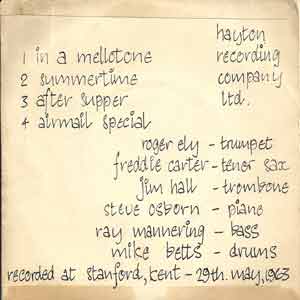 1 in a mellotone
2 summertime
3 after supper
4 airmail special
hayton
recording
company
ltd.
roger ely - trumpet
freddie carter - tenor sax
jim hall - trombone
steve osborn - piano
ray mannering - bass
mike betts - drums
recorded at stanford, kent - 29th. may, 1963